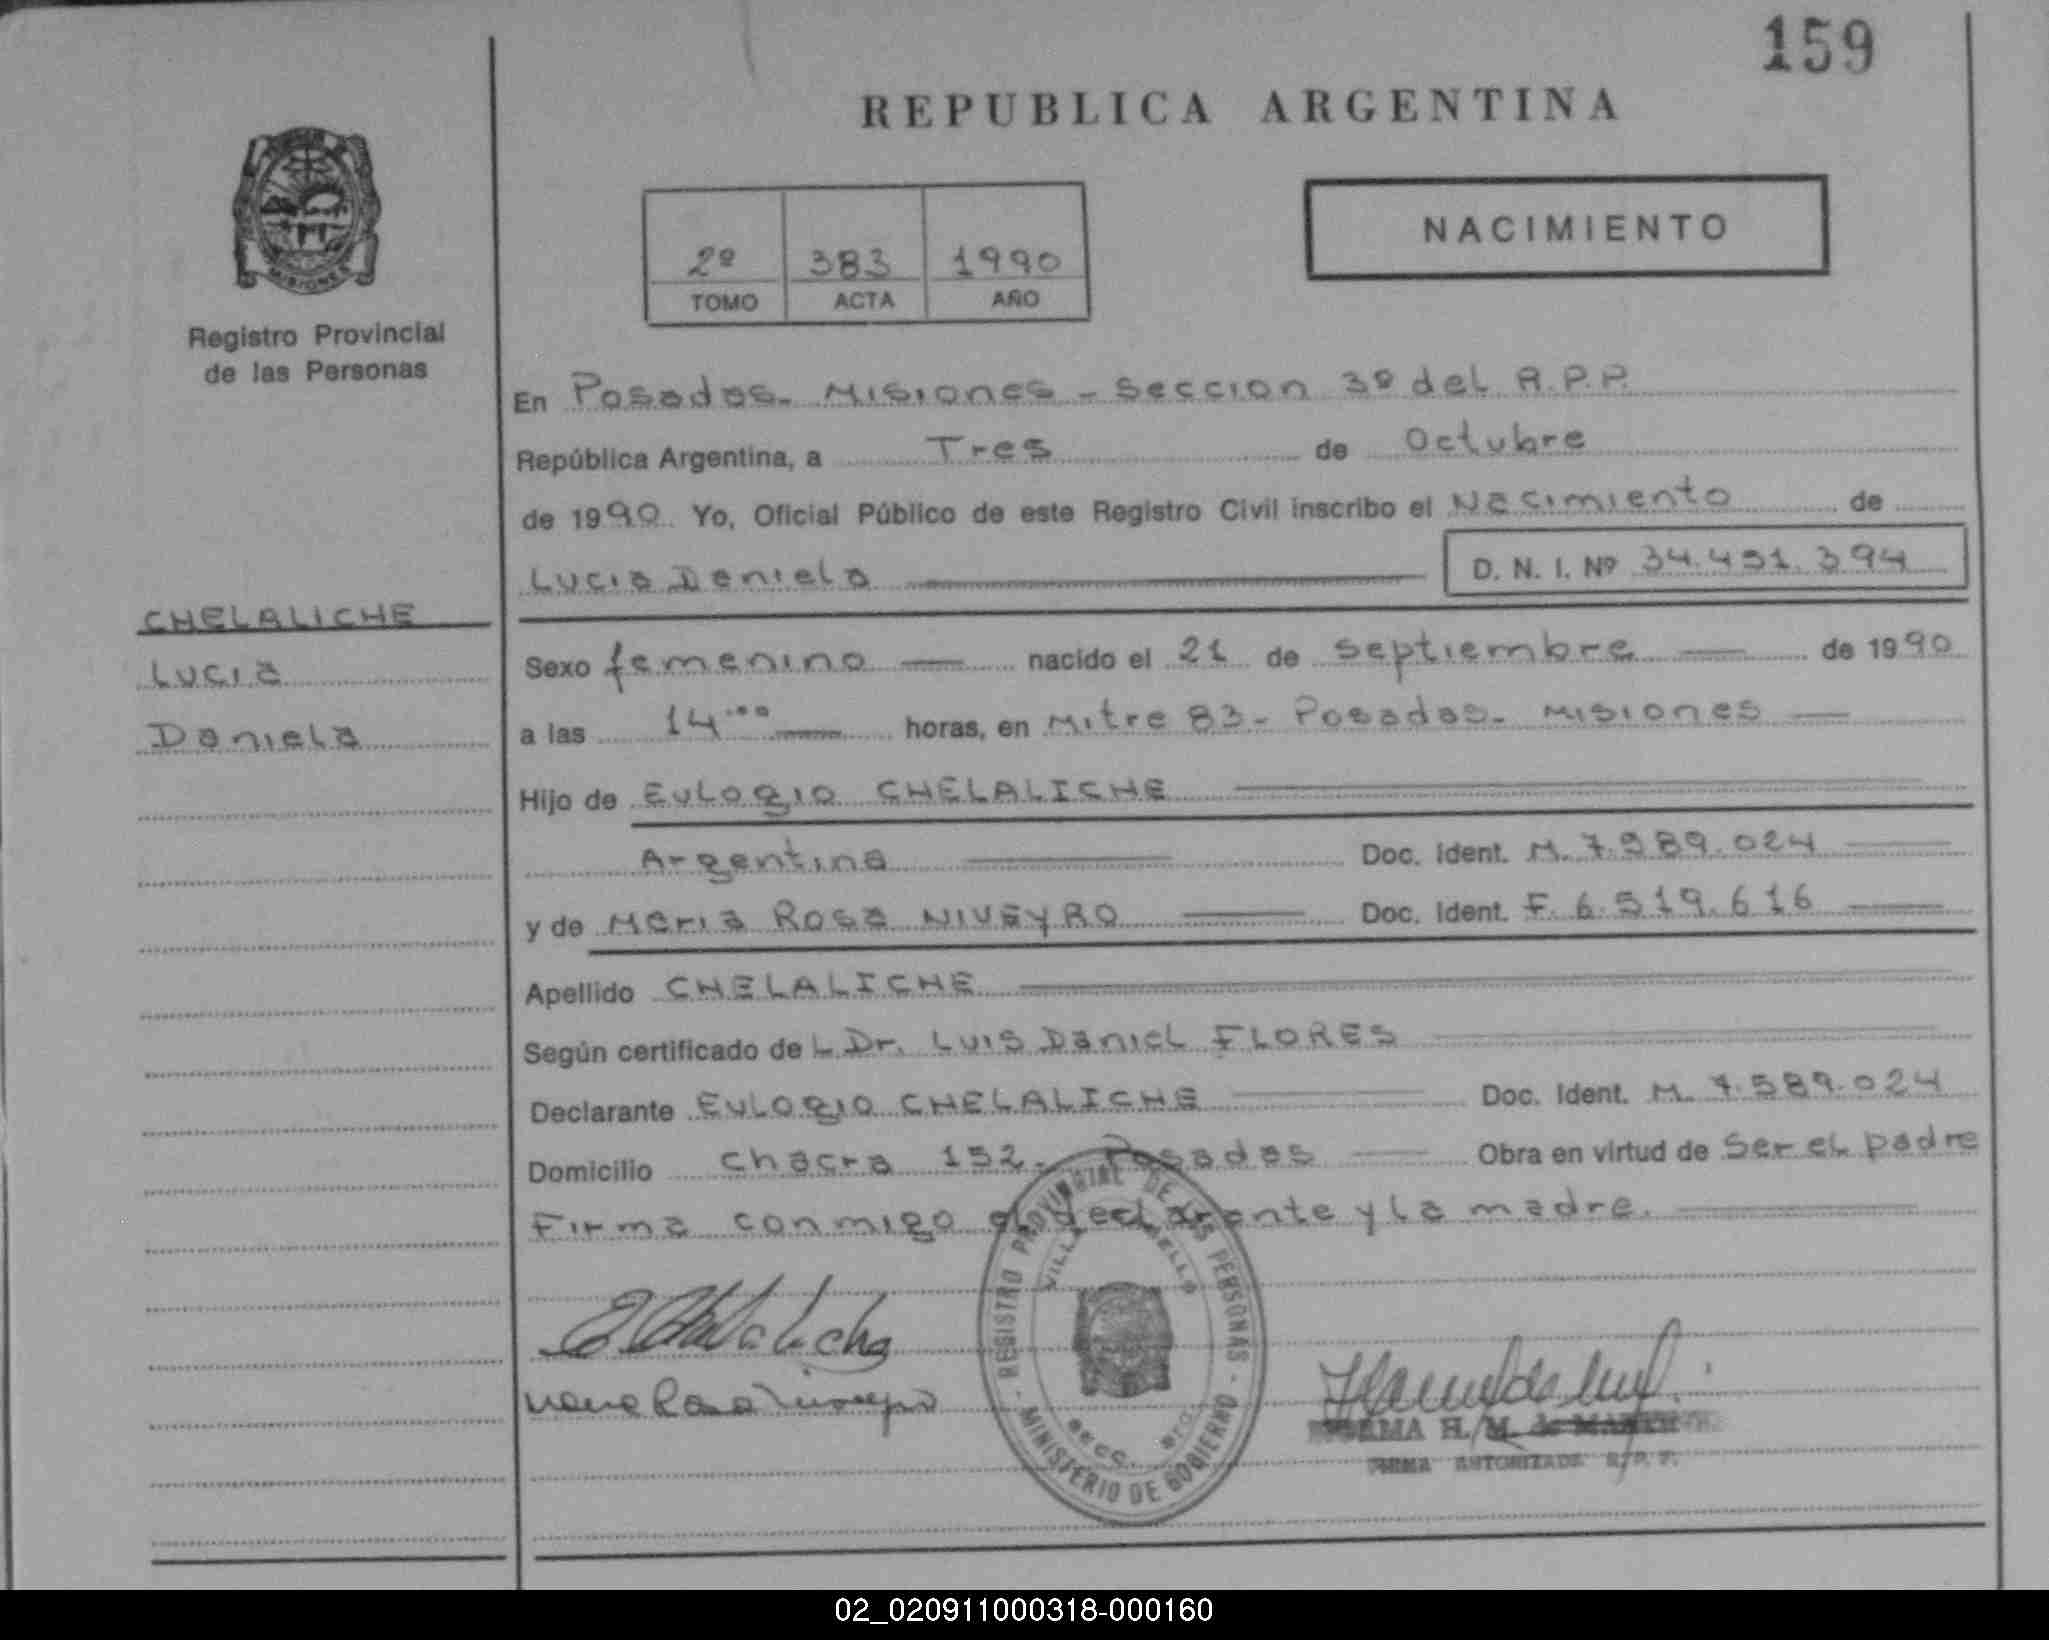 159
REPUBLICA ARGENTINA
MISIONES
Registro Provincial
de las Personas
2º 383 1990
TOMO ACTA AÑO
NACIMIENTO
En Posadas - Misiones - Seccion 3º del R.P.P.
República Argentina, a Tres de Octubre
de 1990. Yo, Oficial Público de este Registro Civil inscribo el Nacimiento de
Lucia Daniela D. N. I. Nº 34.491.394
CHELALICHE
Lucia
Daniela
Sexo femenino — nacido el 21 de septiembre — de 1990
a las 14.00 horas, en Mitre 83 - Posadas - Misiones —
Hijo de Eulogio CHELALICHE
Argentina Doc. Ident. M. 7.589.024
y de Maria Rosa NIVEYRO Doc. Ident. F. 6.519.616
Apellido CHELALICHE
Según certificado del Dr. Luis Daniel FLORES
Declarante Eulogio CHELALICHE Doc. Ident. M. 7.589.024
Domicilio chacra 152 - Posadas — Obra en virtud de ser el padre
Firma conmigo el declarante y la madre.
REGISTRO PROVINCIAL DE LAS PERSONAS
VILLA
SECC. 3ra
MINISTERIO DE GOBIERNO
E Chelaliche
Maria Rosa Niveyro
H. M. de
FIRMA AUTORIZADA R.P.P.
02_020911000318-000160